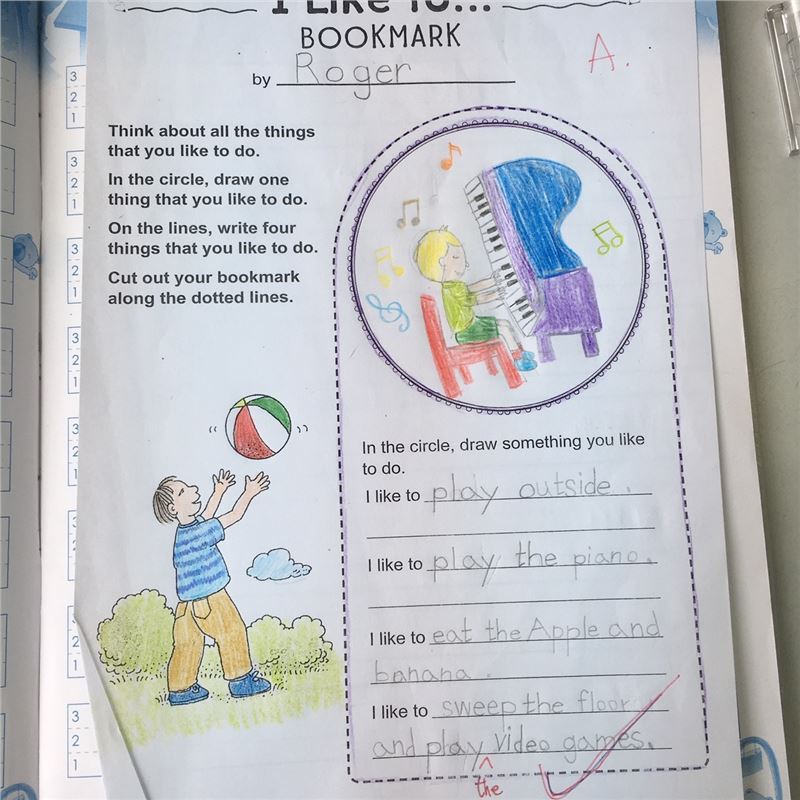 I Like To...
BOOKMARK
by Roger
A.
Think about all the things
that you like to do.
In the circle, draw one
thing that you like to do.
On the lines, write four
things that you like to do.
Cut out your bookmark
along the dotted lines.
In the circle, draw something you like
to do.
I like to play outside.
I like to play the piano.
I like to eat the Apple and
banana.
I like to sweep the floor
and play video games.
the
3
2
1
3
2
1
3
2
1
3
2
1
3
2
1
3
2
1
3
2
1
3
2
1